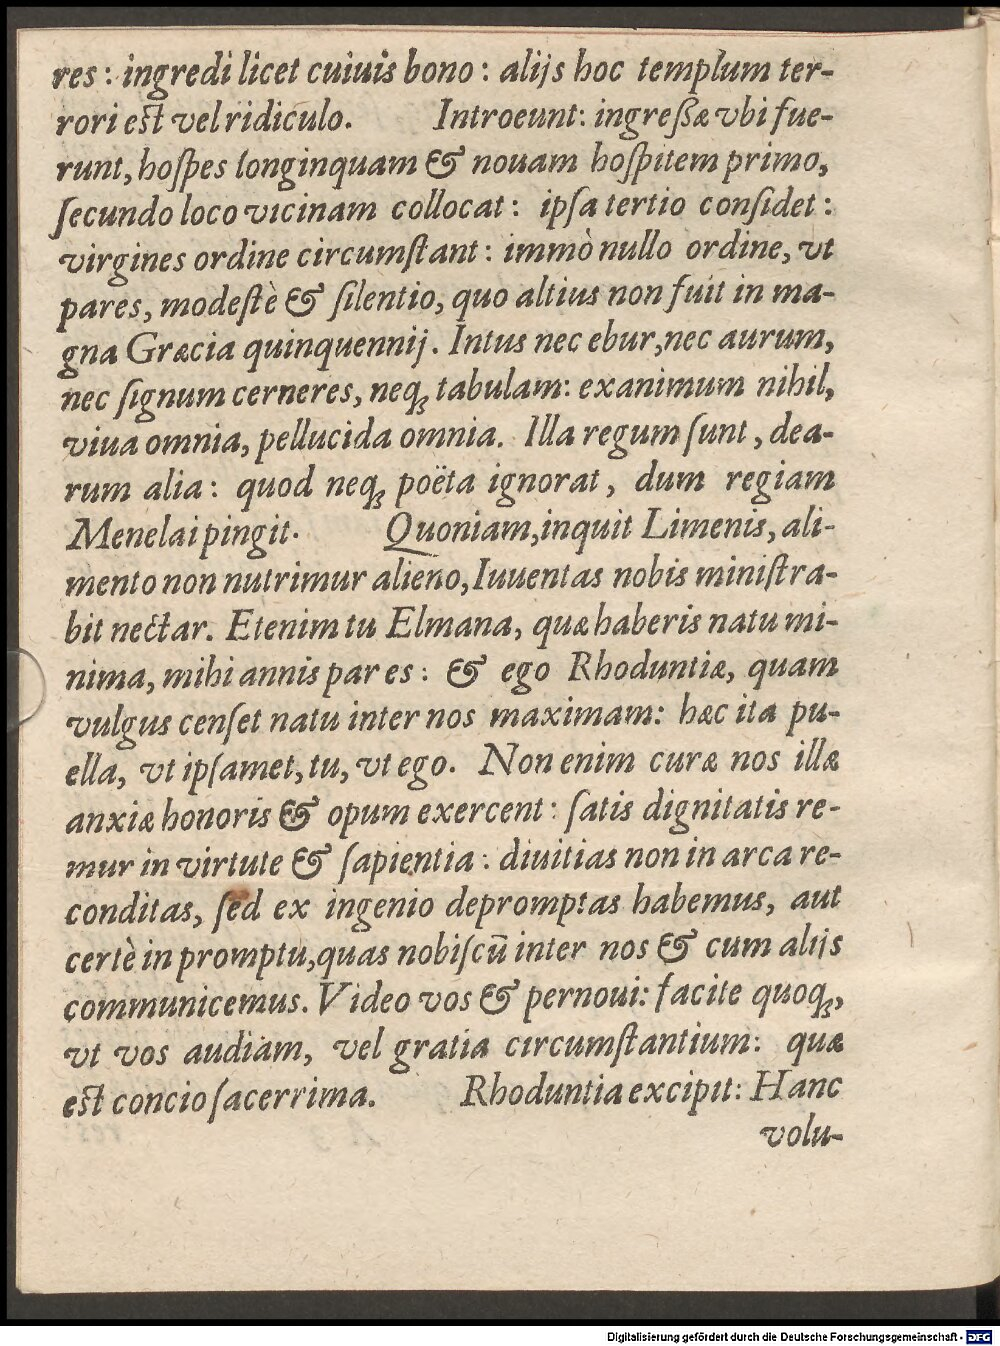 res: ingredi licet cuiuis bono: alijs hoc templum ter-
rori est vel ridiculo. Introeunt: ingreßæ vbi fue-
runt, hoſpes longinquam & nouam hoſpitem primo,
ſecundo loco vicinam collocat: ipſa tertio conſidet:
virgines ordine circumſtant: immò nullo ordine, vt
pares, modeſtè & ſilentio, quo altius non fuit in ma-
gna Græcia quinquennij. Intus nec ebur, nec aurum,
nec ſignum cerneres, neqꝫ tabulam: exanimum nihil,
viua omnia, pellucida omnia. Illa regum ſunt, dea-
rum alia: quod neqꝫ poëta ignorat, dum regiam
Menelai pingit. Quoniam, inquit Limenis, ali-
mento non nutrimur alieno, Iuuentas nobis miniſtra-
bit nectar. Etenim tu Elmana, quæ haberis natu mi-
nima, mihi annis par es: & ego Rhoduntiæ, quam
vulgus cenſet natu inter nos maximam: hæc ita pu-
ella, vt ipſamet, tu, vt ego. Non enim curæ nos illæ
anxiæ honoris & opum exercent: ſatis dignitatis re-
mur in virtute & ſapientia: diuitias non in arca re-
conditas, ſed ex ingenio depromptas habemus, aut
certè in promptu, quas nobiſcū inter nos & cum alijs
communicemus. Video vos & pernoui: facite quoqꝫ,
vt vos audiam, vel gratia circumſtantium: quæ
est concio ſacerrima. Rhoduntia excipit: Hanc
volu-
Digitalisierung gefördert durch die Deutsche Forschungsgemeinschaft - DFG